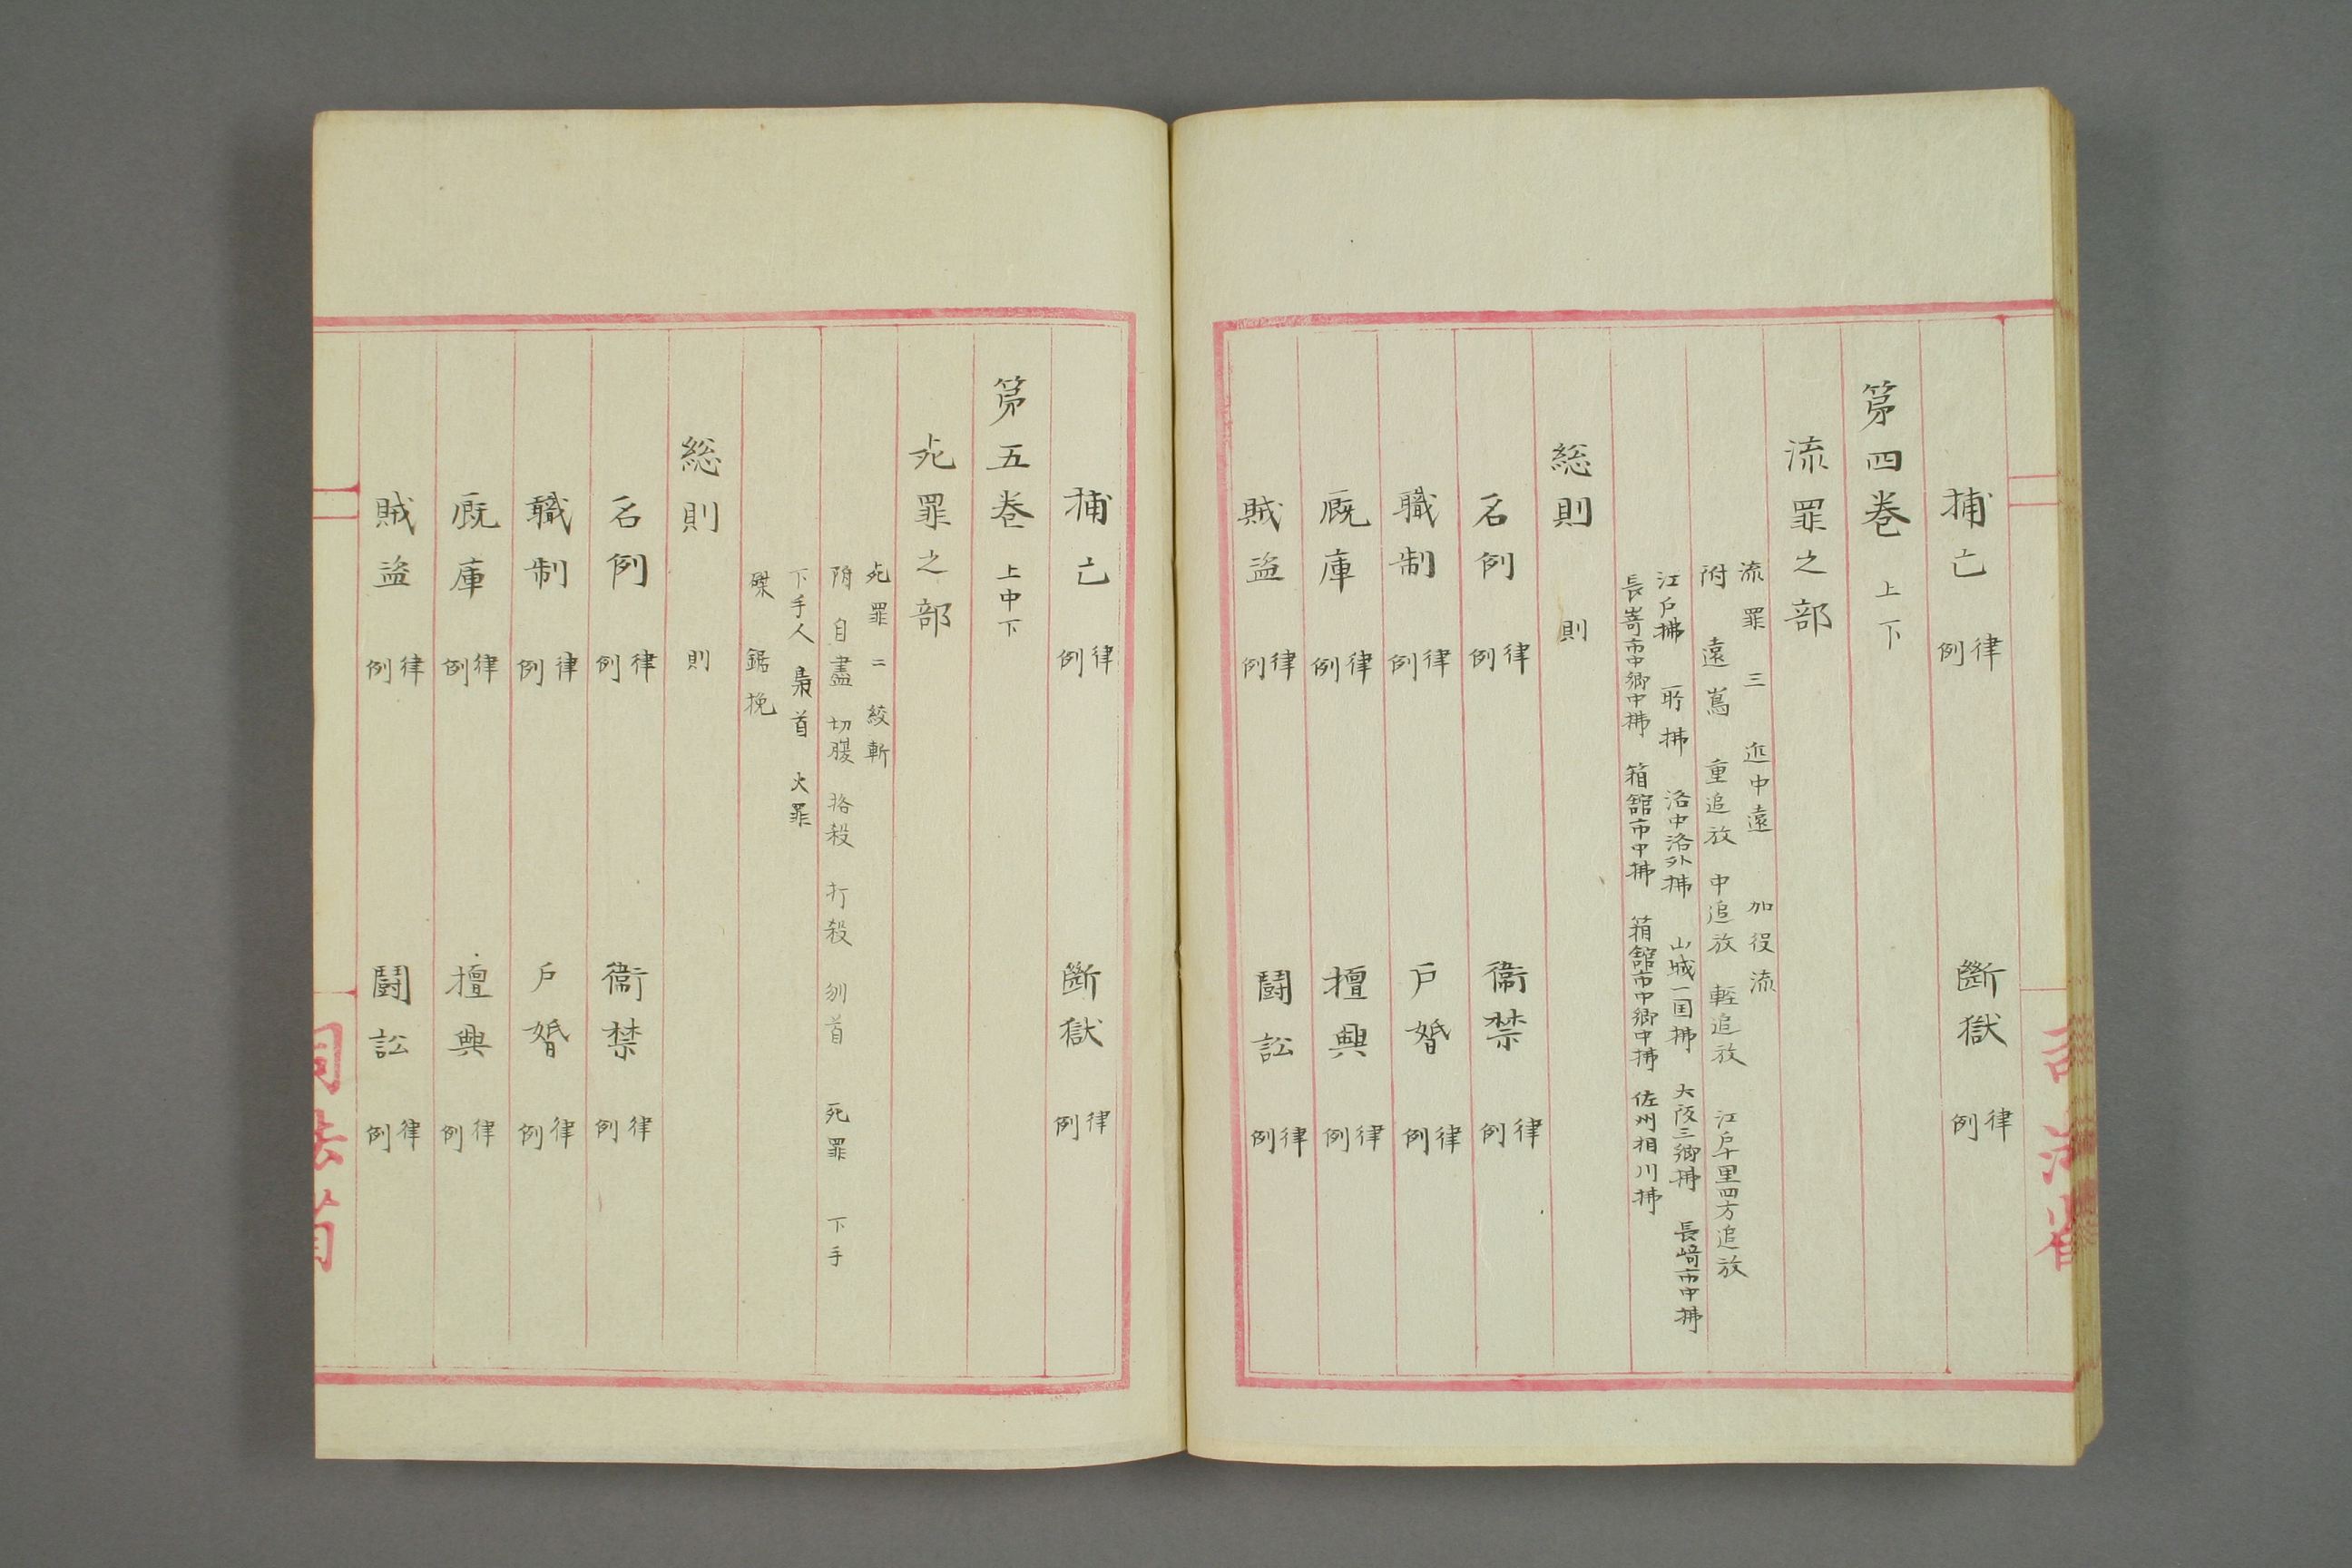 捕亡 律例 斷獄 律例
第四卷 上下
流罪之部
流罪三 近中遠 加役流
附 遠嶌 重追放 中追放 軽追放 江戸十里四方追放
江戸拂 所拂 洛中洛外拂 山城一国拂 大阪三郷拂 長崎市中拂
長嵜市中郷中拂 箱館市中拂 箱館市中郷中拂 佐州相川拂
総則 則
名例 律例 衞禁 律例
職制 律例 戸婚 律例
厩庫 律例 擅興 律例
賊盗 律例 鬪訟 律例
捕亡 律例 斷獄 律例
第五卷 上中下
死罪之部
死罪二 絞斬
附 自盡 切腹 挌殺 打殺 刎首 死罪 下手
下手人 梟首 火罪
磔 鋸挽
総則 則
名例 律例 衞禁 律例
職制 律例 戸婚 律例
厩庫 律例 擅興 律例
賊盗 律例 鬪訟 律例
司法省